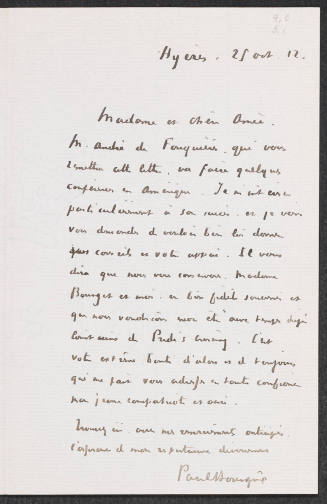 Hyères. 25 oct 12.
Madame et chère Amie.
M. André de Fouquières, qui vous
remettra cette lettre, va faire quelques
conférences en Amérique. Je m'intéresse
particulièrement à son succès et je viens
vous demander de vouloir bien lui donner
conseils et votre appui. Il vous
dira que nous vous conservons, Madame
Bourget et moi, un bon fidèle souvenir et
que nous voudrions avoir été
C'est
votre extrême bonté d'alors et de toujours
qui me fait vous adresser en toute confiance
mon jeune compatriote et ami.
Trouvez ici, avec mes remerciements anticipés,
l'expression de mon respectueux dévouement
Paul Bourget